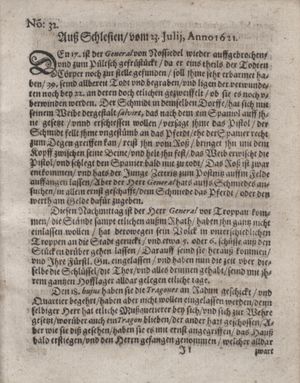 No: 32.
Auß Schlesien/ vom 23. Julij, Anno 1621.
DEn 17. ist der General von Rossiedel wieder auffgebrochen/
und zum Pültsch gefrüstückt/ da er eins theils der Todten
Cörper noch zur stelle gefunden/ soll ihme sehr erbarmet ha-
ben/ 39. seind allbereit Todt und begraben/ und ligen der verwunde-
ten noch bey 22. an deren doch etlichen gezweiffelt/ ob sie es
winden werden. Der Schmidt in demselben Dorffe/ hat sich mit
seinem Weibe dergestalt salvirt, das nach dem ein Spanier auff ih-
ne gesetzt/ und erschiessen wollen/ versaget ihme das Pistol/ der
Schmidt fellt ihme ungestümb an das Pferdt/ ehe der Spanier recht
zum Degen greiffen kan/ reist ihn vom Roß/ bringet ihn mit dem
Kopff zwischen seine Beine/ und helt ihn fest/ das Weib erwischt die
Pistol/ und schlegt den Spanier bald mit zu todt/ Das Roß ist zwar
entkommen/ und hats der Junge
auffangen lassen/ Aber der Herr General hats auffs Schmiedes an-
suchen/ in allem ernst geschafft/ dem Schmiede das Pferdt/ oder den
werth am Gelde dafür zugeben.
Diesen Nachmittag ist der Herr General vor Troppau kom-
men/ die Stände sampt etlichen außm Rhath/ haben ihn gantz nicht
einlassen wollen/ hat derowegen sein Volck in unterschiedlichen
Troppen an die Stadt geruckt/ und etwa 5. oder 6. schüsse auß den
Stücken uber die Dächer gehen lassen/ Darauff seind sie herauß kommen/
und haben nun die zeit vor der sel-
be die Schlüssel/ die Thor/ und alles drinnen gehabt/ seind mit ih-
rem gantzen Hofflager alldar gelegen reicht alle.
Den 18. hujus haben sie die Tragoner an Radun geschickt/ und
Quartier begehrt/ haben aber nicht wollen eingelassen werden/ dann
selbiger Herr hat etliche Mußquetierer bey sich/ und sich zur Wehre
gesetzt/ worüber auch ein Tragon blieben/ der ander hart geschossen/ A-
ber wie sie diß gesehen/ haben sie es mit ernst angegriffen/ das Hauß
bald erstiegen/ und den Herrn gefangen genommen/ welcher alldar
zwart